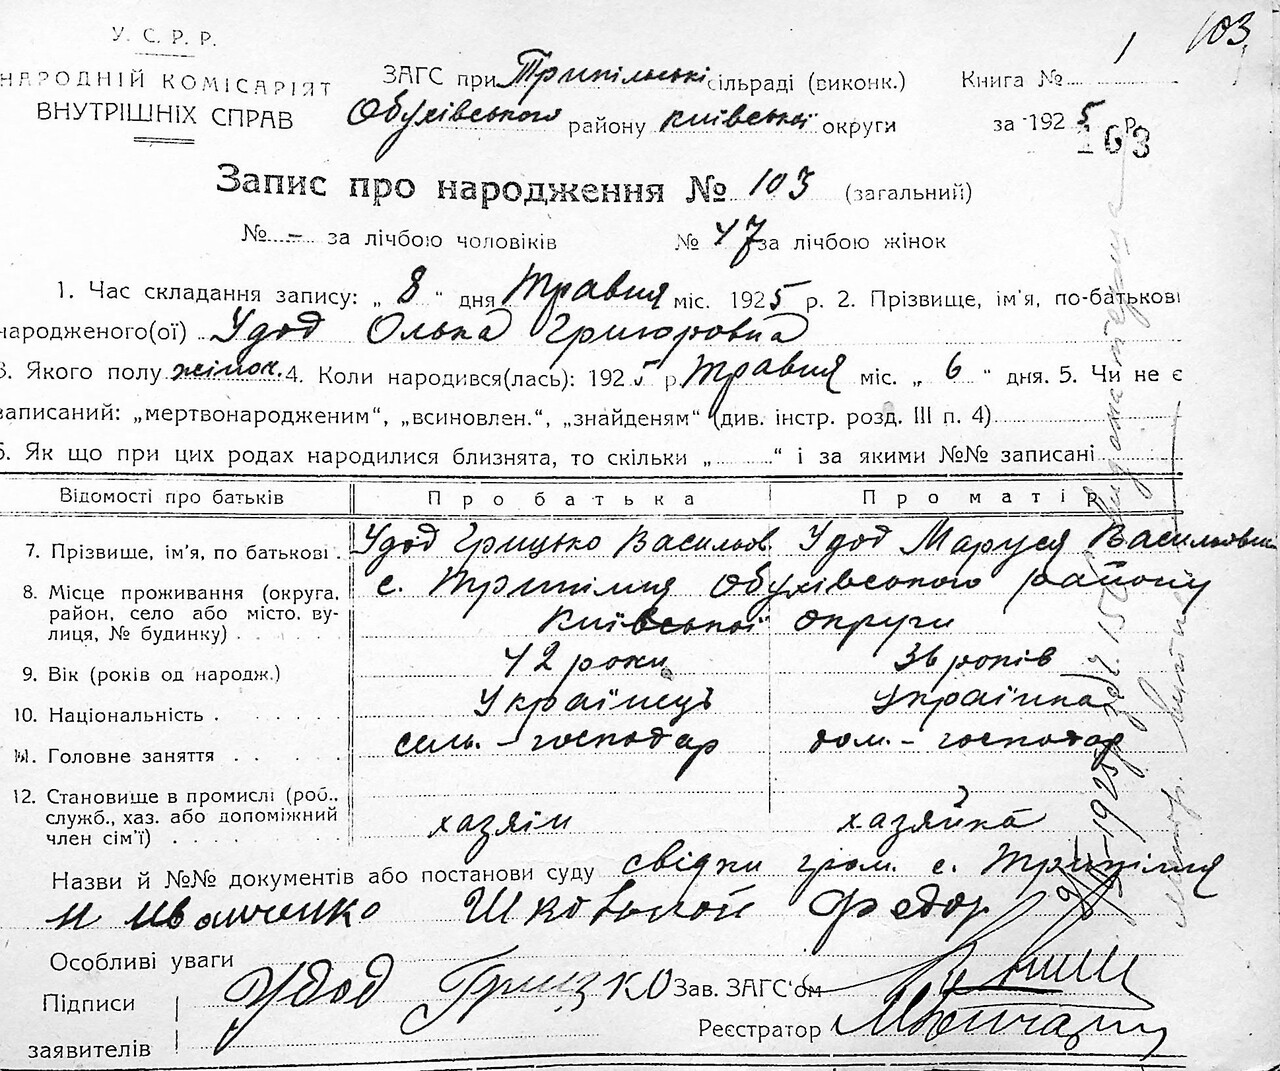 103
У. С. Р. Р.
НАРОДНІЙ КОМІСАРІЯТ
ВНУТРІШНІХ СПРАВ
ЗАГС при Трипільські сільраді (виконк.) Книга № 1
Обухівського району київської округи за 1925 р.
103
Запис про народження № 103 (загальний)
№ – за лічбою чоловіків № 47 за лічбою жінок
1. Час складання запису: „ 8 “ дня Травня міс. 1925 р. 2. Прізвище, ім'я, по-батькові
народженого(ої) Удод Олька Григоровна
3. Якого полу жіноч. 4. Коли народився(лась): 1925 р. Травня міс. „ 6 “ дня. 5. Чи не є
записаний: „мертвонародженим“, „всиновлен.“, „знайденям“ (див. інстр. розд. III п. 4)
6. Як що при цих родах народилися близнята, то скільки „ “ і за якими №№ записані
Відомості про батьків Про батька Про матір
7. Прізвище, ім'я, по батькові Удод Грицько Васильов. Удод Маруся Васильовни
8. Місце проживання (округа, район, село або місто, вулиця, № будинку) с. Трипілля Обухівського району
київської округи
9. Вік (років од народж.) 42 роки 36 років
10. Національність Українець українка
11. Головне заняття сель. – господар дом. – господар
12. Становище в промислі (роб., служб., хаз. або допоміжний член сім'ї) хазяїн хазяйка
Назви й №№ документів або постанови суду свідки гром. с. Трипілля
Іванченко Шковтой Федор
Особливі уваги
Підписи заявителів Удод Грицко Зав. ЗАГС'ом
Реєстратор